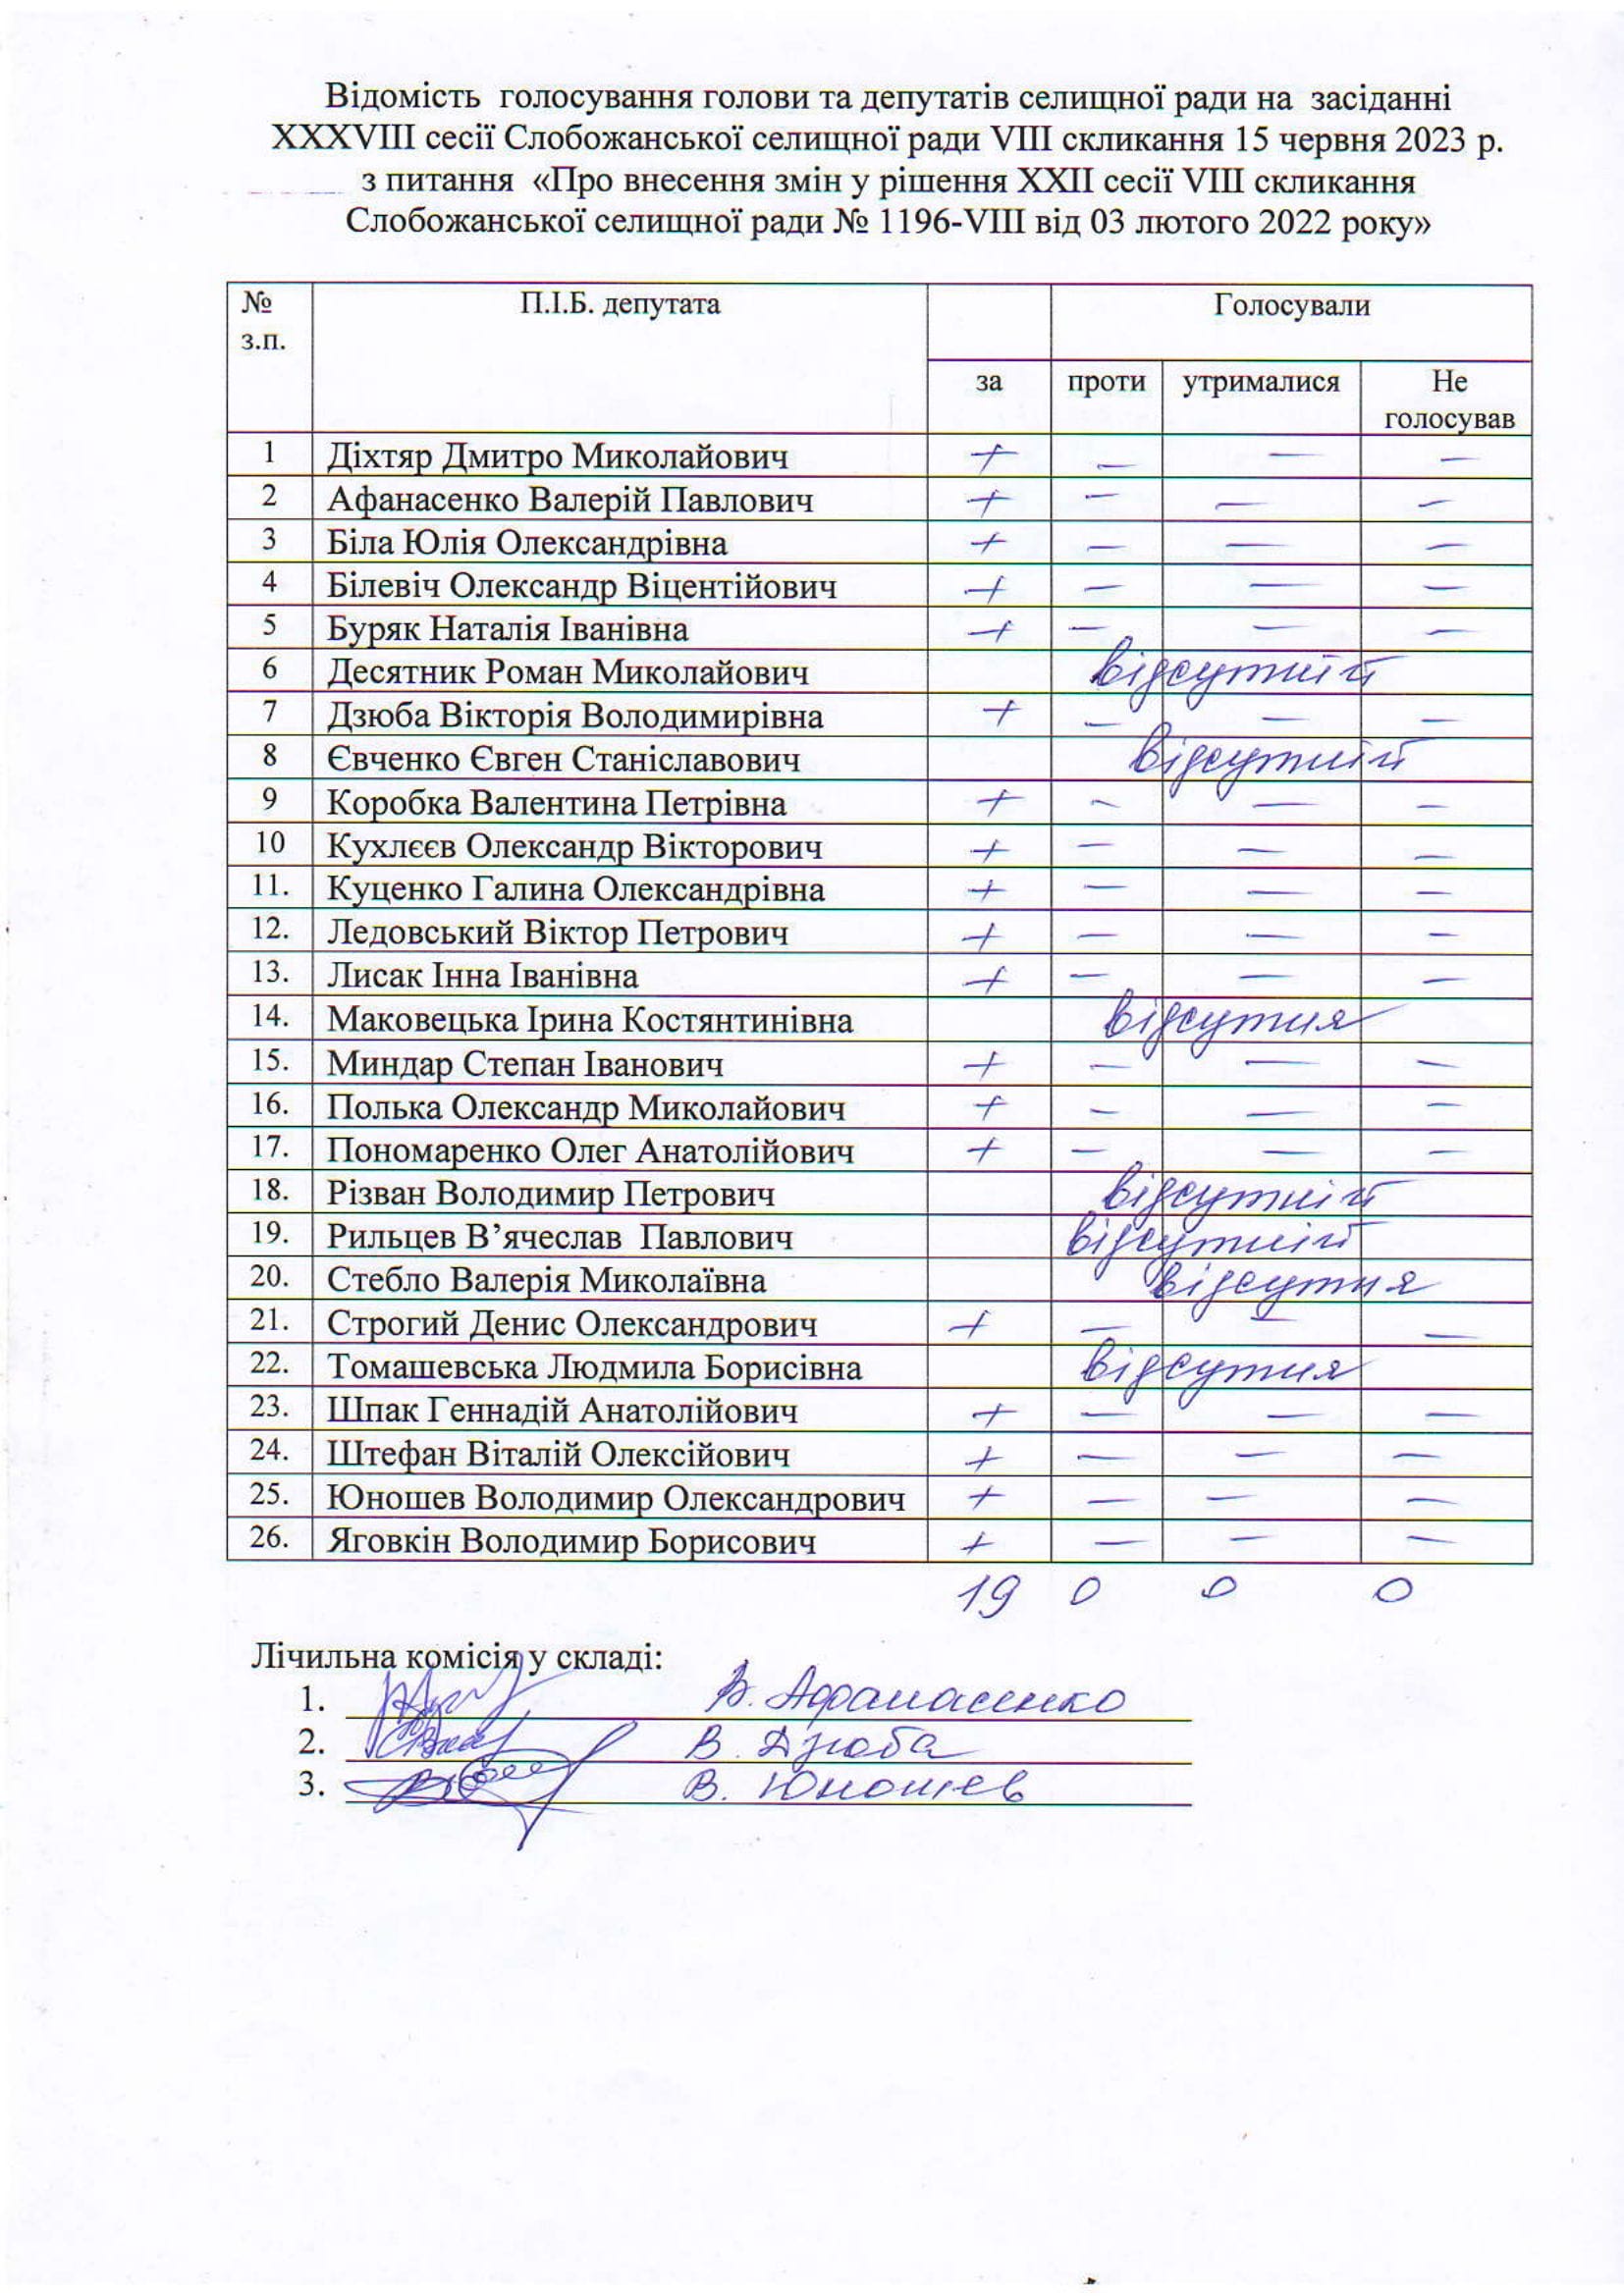 Відомість голосування голови та депутатів селищної ради на засіданні
XXXVIII сесії Слобожанської селищної ради VIII скликання 15 червня 2023 р.
з питання «Про внесення змін у рішення XXII сесії VIII скликання
Слобожанської селищної ради № 1196-VIII від 03 лютого 2022 року»
№ П.І.Б. депутата Голосували
з.п.
за проти утрималися Не
голосував
1 Діхтяр Дмитро Миколайович + — — —
2 Афанасенко Валерій Павлович + — — —
3 Біла Юлія Олександрівна + — — —
4 Білевіч Олександр Віцентійович + — — —
5 Буряк Наталія Іванівна + — — —
6 Десятник Роман Миколайович відсутній
7 Дзюба Вікторія Володимирівна + — — —
8 Євченко Євген Станіславович відсутній
9 Коробка Валентина Петрівна + — — —
10 Кухлєєв Олександр Вікторович + — — —
11. Куценко Галина Олександрівна + — — —
12. Ледовський Віктор Петрович + — — —
13. Лисак Інна Іванівна + — — —
14. Маковецька Ірина Костянтинівна відсутня
15. Миндар Степан Іванович + — — —
16. Полька Олександр Миколайович + — — —
17. Пономаренко Олег Анатолійович + — — —
18. Різван Володимир Петрович відсутній
19. Рильцев В’ячеслав Павлович відсутній
20. Стебло Валерія Миколаївна відсутня
21. Строгий Денис Олександрович + — — —
22. Томашевська Людмила Борисівна відсутня
23. Шпак Геннадій Анатолійович + — — —
24. Штефан Віталій Олексійович + — — —
25. Юношев Володимир Олександрович + — — —
26. Яговкін Володимир Борисович + — — —
19 0 0 0
Лічильна комісія у складі:
1. В. Афанасенко
2. В. Дзюба
3. В. Юношев